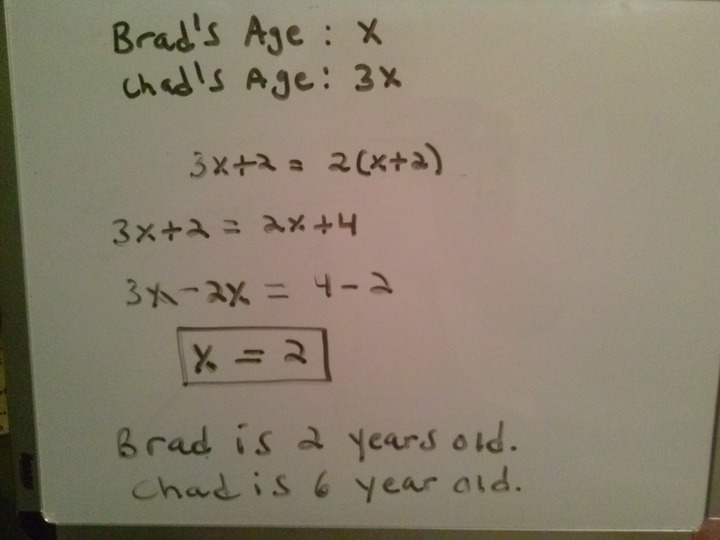 Brad's Age: x
Chad's Age: 3x
3x+2 = 2(x+2)
3x+2 = 2x+4
3x-2x = 4-2
x = 2
Brad is 2 years old.
Chad is 6 year old.